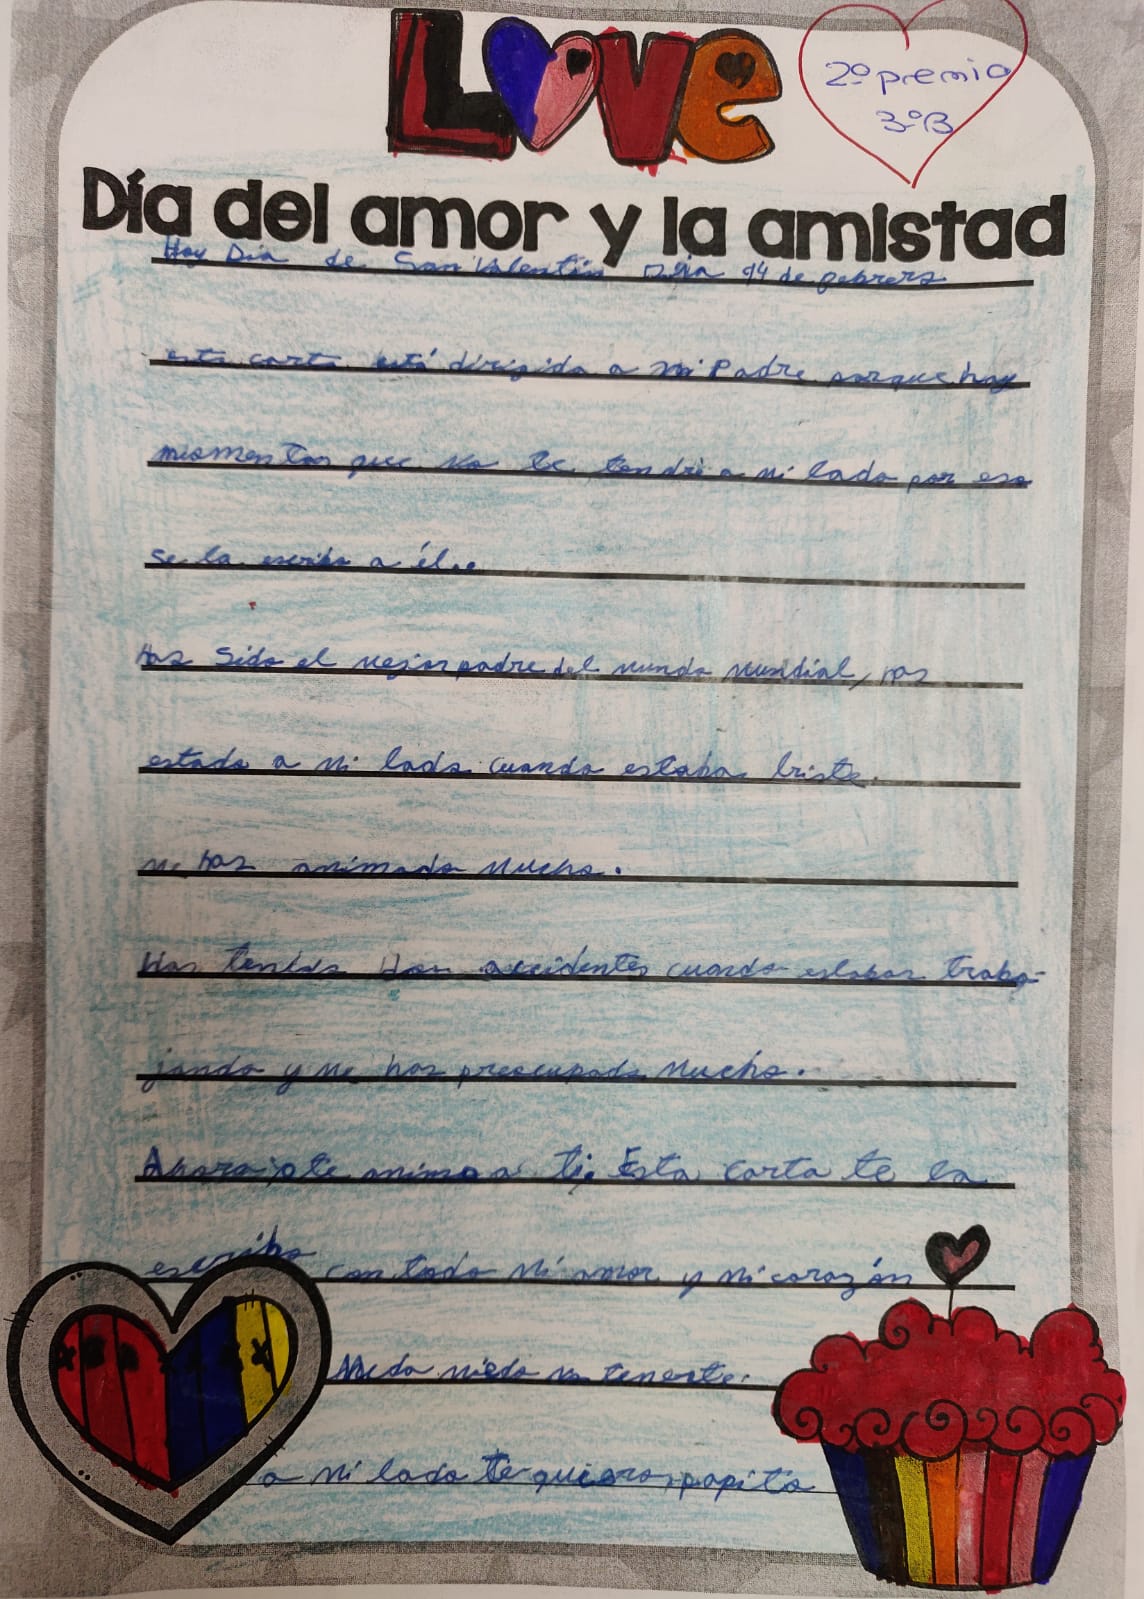 Love
2º premio
3ºB
Día del amor y la amistad
Hoy Día de San Valentín Día 14 de febrero
esta carta está dirigida a mi Padre porque hay
miomentos que no te tendré a mi lado por eso
se la escribo a él..
Has Sido el mejor padre del mundo mundial, has
estado a mi lado cuando estaba triste.
me has animado mucho.
Has tenido accidentes cuando estabas traba-
jando y me has preocupado mucho.
Ahora yo te animo a ti. Esta carta te la
escribo con todo mi amor y mi corazón
Me da miedo no tenerte.
a mi lado te quiero, papito